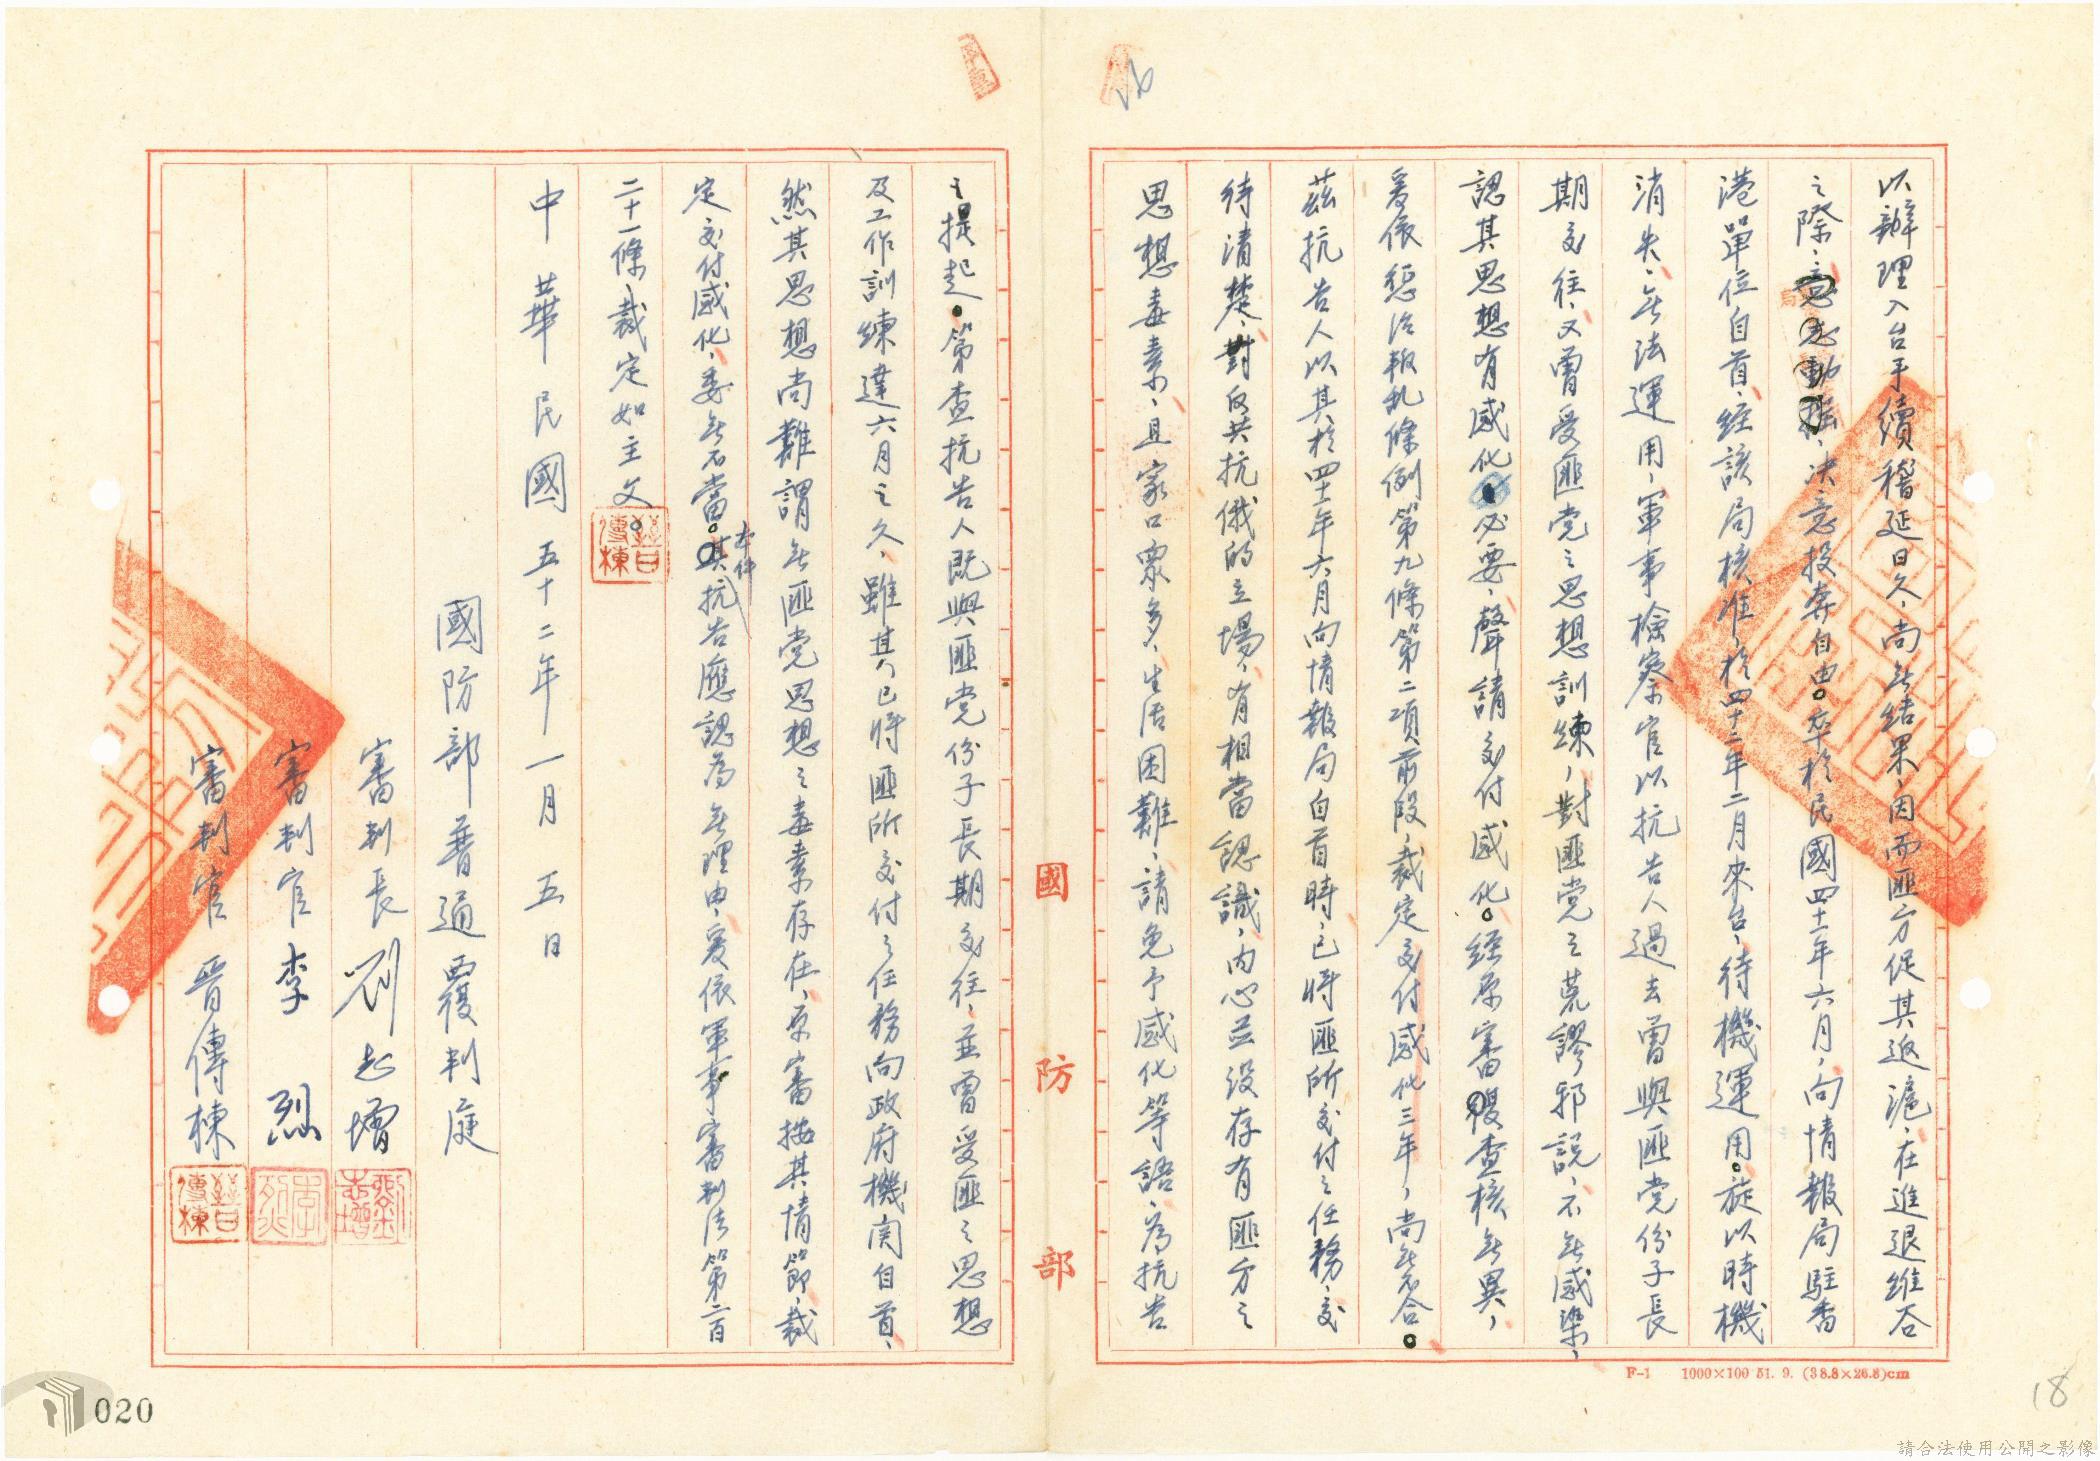 以辦理入台手續稽延日久、尚無結果、因而匪方促其返滬、在進退維谷
之際、意志動搖、决意投奔自由。卒於民國四十一年六月、向情報局駐香
港單位自首、經該局核准、於四十二年二月來台、待機運用。旋以時機
消失、無法運用、軍事檢察官以抗告人過去曾與匪党份子長
期交往、又曾受匪党之思想訓練、對匪党之荒謬邪説、不無感染、
認其思想有感化必要、聲請交付感化。經原審覆查核無異、
爰依懲治叛乱條例第九條第二項前段、裁定交付感化三年、尚無不合。
茲抗告人以其於四十一年六月向情報局自首時、已將匪所交付之任務、交
待清楚、對反共抗俄的立場、有相當認識、内心並没存有匪方之
思想毒素、且家口衆多、生活困難、請免予感化等語、為抗告
之提起。第查抗告人既與匪党份子長期交往、並曾受匪之思想
及工作訓練達六月之久、雖其已將匪所交付之任務向政府機関自首、
然其思想尚難謂無匪党思想之毒素存在、原審按其情節、裁
定交付感化、委無不當。本件抗告應認為無理由、爰依軍事審判法第二百
二十一條、裁定如主文。
中華民國五十二年一月五日
國防部普通覆判庭
審判長劉起增
審判官李烈
審判官晉傳棟
國防部
F-1 1000×100 51. 9. (38.8×26.8)cm
18
020
請合法使用公開之影像